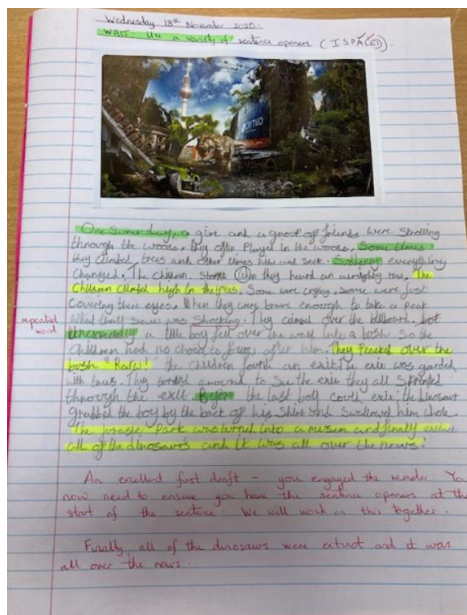 Wednesday 18th November 2020.
WALT: Use a variety of sentence openers (ISPACED).
One sumer day, a give and a groof of friends were strolling
through the woods. They often Player in the woods, Some times
they climbed trees and other times hid and seek. Suddenly everything
changed. The children. they heard an row. The
Children Climbed high in the trees. Some were crying, some were just
Covering there eyes. When they were brave enough to take a peak
What they saw was Shocking. They over the billboard, but
repeated
word
Unexpectedly a little boy fell over the wall into a bosh. So the
Children had no choice to after him. They Peaked over the
bosh "Rar!!" the children an exit. The exie was garded
with trees. They around to See the exie they all Sprinted
throrugh the exit. Before the last boy exie, the dinosaur
grabbed the boy by the back of his Shirt and Swallowed him whole.
The jurassic Park was turned into a museum and finally
all of the dinosaurs and it was all over the news!
An excellent first draft - you engaged the reader. You
now need to ensure you have the sentence openers at the
start of the sentence. We will work on this together.
Finally, all of the dinosaurs were extinct and it was
all over the news.